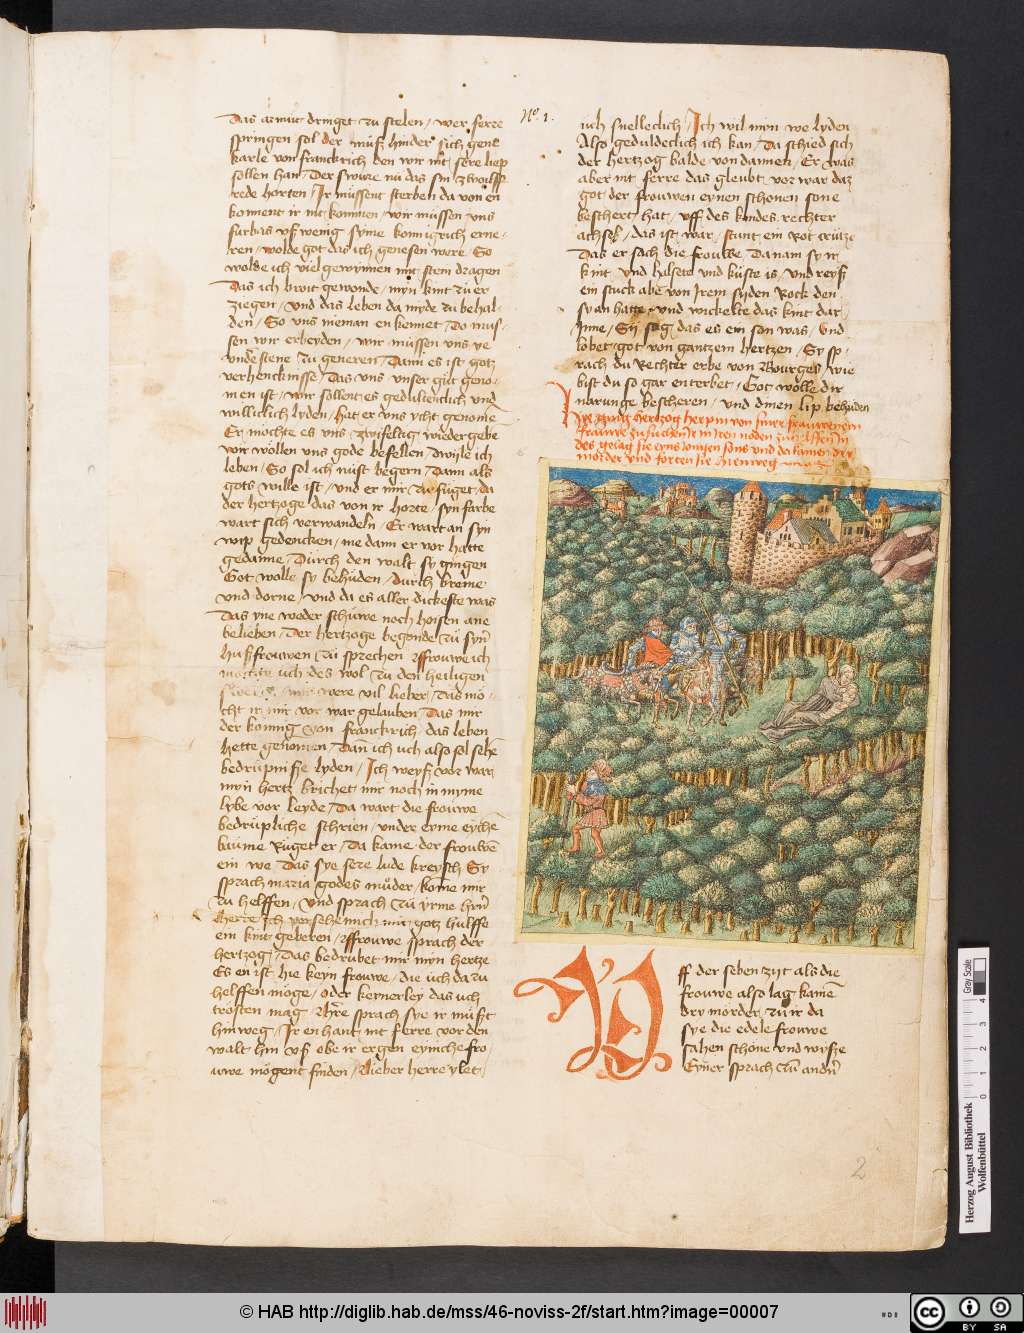 Das armut dringet zu stelen / wer ferre
springen sol der muß hinder sich gene
karle von franckrich den wir nit sere liep
sollen han / Der swure nu das sin zwoilff
rede horten / Ir mussent sterben da von en
koment ir nit / kommen / wir mussen uns
furbas uf wenig syme konnigrich erne-
ren / wolde got das ich genesen were / So
wolde ich viel gewynnen mit stem dragen
Das ich broit gewonde / myn kint zu er
ziegen / Und das leben da myde zu behal-
den / So uns nieman en kennet / Do mus-
sen wir erbeyden / wir mussen uns ye
understene zu generen / Dann es ist gotz
verhencknisse / Das uns unser gut geno-
men ist / wir sollent es gedulteclich und
willicklich lyden / hat er uns ycht genome
Er mochte es uns zwifeltig wieder gebe
wir wollen uns gode befellen / Dwyle ich
leben / So sol ich nust begern / Dann als
gots wille ist / und er mir zu fuget / da
der hertzoge das von ir horte / syn farbe
wart sich verwandeln / Er wart an syn
wip gedencken / me dann er vor hatte
gedaine / Durch den walt sy gingen
Got wolle sy behuden / durch breme
und dorne / und da es aller dickeste was
Das yne weder schuwe noch hoisen ane
belieben / Der hertzoge begonde zu syn
hußfrouwen zu sprechen / Ffrouwe ich
mochte uch des wol zu den heiligen
were vil lieber / das mo-
cht ir mir vor war gelauben / Das mir
der konnig von franckrich / das leben
hette genomen / Dan ich uch also sol sehe
bedrupnisse lyden / Ich weyß vor war
myn hertz brichet mir noch in myme
lybe vor leyde / Da wart die frouwe
bedrupliche schrien / under eyme eyche
baume ruget er / Da kame der frouwe
ein we / Das sye sere lude kreysch / Sy
sprach maria godes muder / kome mir
zu helffen / Und sprach zu yrme hern
Herre ich versehe mich mit gotz hulffe
ein kint geberen / Ffrouwe sprach der
hertzog / Das bedrubet mir myn hertze
Es en ist hie keyn frouwe / die uch da zu
helffen moge / oder keynerley das uch
trosten mag / Here sprach sye ir must
hinweg / Ir en hant nit ferre vor den
walt hin uß / obe ir ergen eyniche fro-
uwe mogent finden / Lieber herre ylet
No 1.
uch snelleclich / Ich wil myn we lyden
Also geduldeclich ich kan / Da schied sich
der hertzog balde von dannen / Er was
aber nit ferre das gleubt / vor war daz
got der frouwen eynen schonen sone
beschert hat / uff des kindes rechter
achsel / das ist war / stunt ein Rot crutze
Das er sach die frouwe / Da nam sy ir
kint / und halsete und kuste is / und reyß
ein stuck abe von Irem syden Rock den
sy an hatte / und wickelte das kint dar
Inne / Sy sag das es ein son was / Und
lobet got von gantzem hertzen / Sy sp-
rach du Rechter erbe von Bourges / wie
bist du so gar enterbet / Got wolle dir
narunge bescheren / und dinen lip behuden
ging hertzog herpin von siner frauwen ein
frauwe zu sucken
des gelag sie eyns jongen sons und da kamen dry
morder und forten sie hienweg
Vff der seben zijt als die
frouwe also lag / kame
dry morder / zu ir da
sye die edele frouwe
sahen schone und wyße
Eyner sprach zu andern
2
Herzog August Bibliothek
Wolfenbüttel
0 1 2 3 4
Gray Scale
© HAB http://diglib.hab.de/mss/46-noviss-2f/start.htm?image=00007
cc BY SA